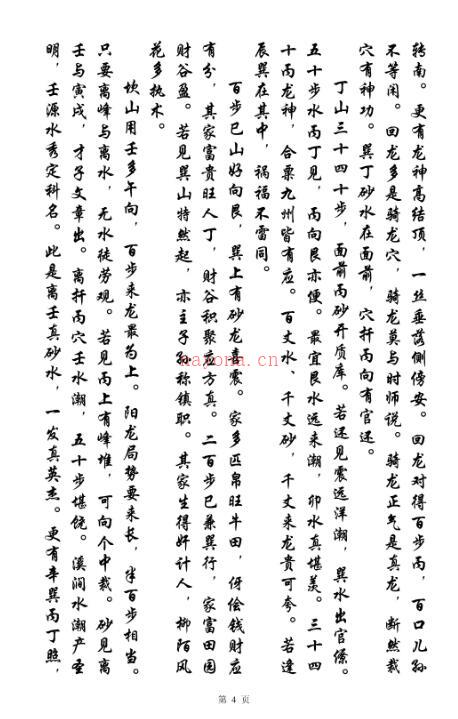 转南。更有龙神高结顶，一丝垂落侧傍安。回龙对得百步丙，百口儿孙
不等闲。回龙多是骑龙穴，骑龙莫与时师说。骑龙正气是真龙，断然裁
穴有神功。巽丁砂水在面前，穴扦丙向有官还。
丁山三十四十步，面前丙砂开质库。若还见震远洋潮，巽水出官僚。
五十步水丙丁见，丙向艮亦便。最宜艮水远来潮，卯水真堪羡。三十四
十丙龙神，合粟九州皆有应。百丈水、千丈砂，千丈来龙贵可夸。若逢
辰巽在其中，祸福不雷同。
百步巳山好向艮，巽上有砂龙喜震。家多匹帛旺牛田，伢侩钱财应
有分，其家富贵旺人丁，财谷积聚应方真。二百步巳兼巽行，家富田园
财谷盈。若见巽山特然起，亦主子孙称镇职。其家生得奸计人，柳陌风
花多执术。
坎山用壬多午向，百步来龙最为上。阳龙局势要来长，半百步相当。
只要离峰与离水，无水徒劳观。若见丙上有峰堆，可向个中裁。砂见离
壬与寅戌，才子文章出。离扦丙穴壬水潮，五十步堪饶。溪涧水潮产圣
明，壬源水秀定科名。此是离壬真砂水，一发真英杰。更有辛巽丙丁照，
nayona.cn
第 4 页